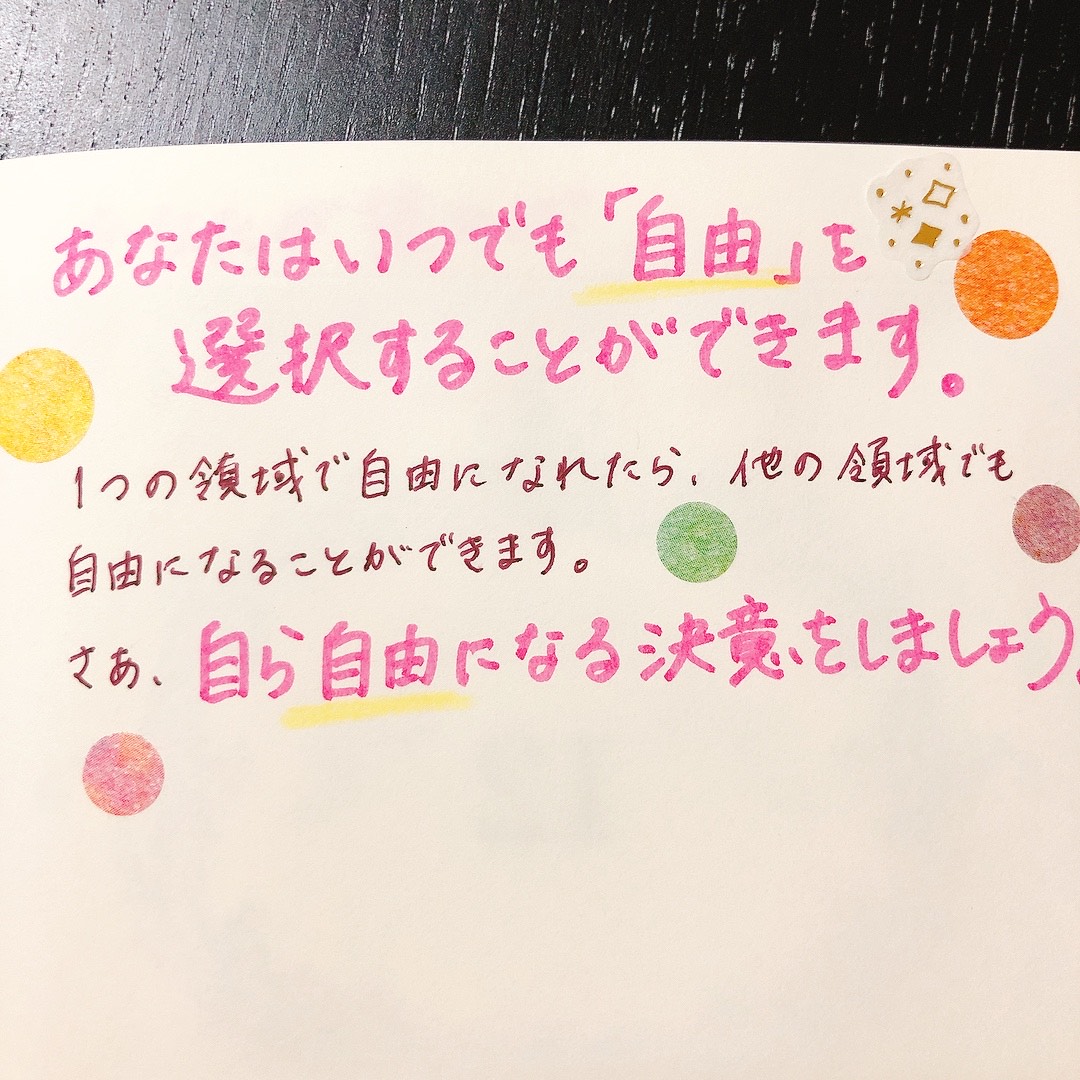 あなたはいつでも「自由」を
選択することができます。
1つの領域で自由になれたら、他の領域でも
自由になることができます。
さあ、自ら自由になる決意をしましょう。